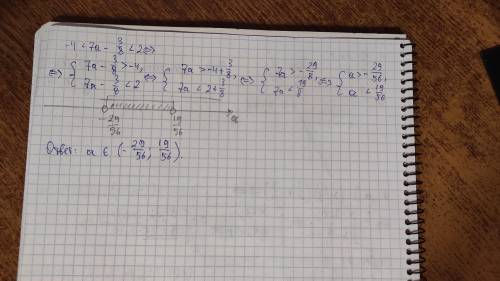 -4 < 7a - 3/8 < 2 ⇔
⇔ { 7a - 3/8 > -4, 7a - 3/8 < 2 ⇔ { 7a > -4 + 3/8, 7a < 2 + 3/8 ⇔ { 7a > -29/8, 7a < 19/8 ⇔ { a > -29/56, a < 19/56
-29/56 19/56 a
Ответ: a ∈ (-29/56; 19/56).